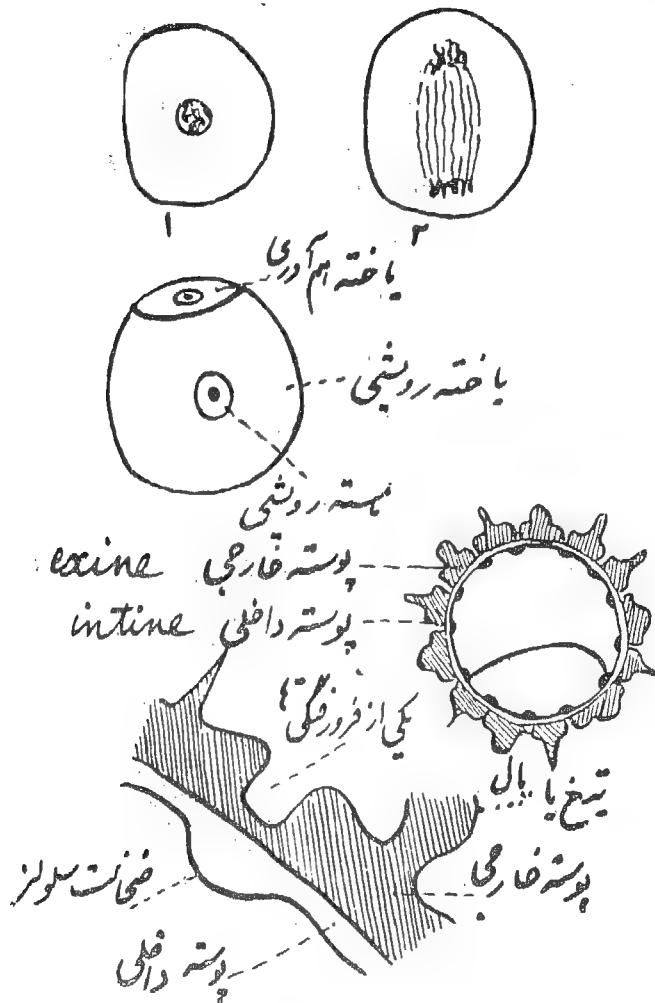 ۱
۲
یاخته هم‌آوری
یاخته رویشی
هسته رویشی
exine پوسته خارجی
intine پوسته داخلی
یکی از فرورفتگی‌ها
تیغ یا بال
ضخامت سلولز
پوسته خارجی
پوسته داخلی